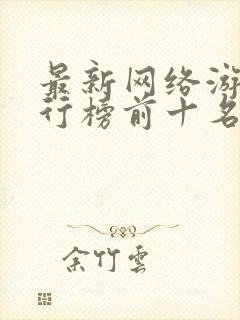 最新网络游
行榜前十名
余竹雲